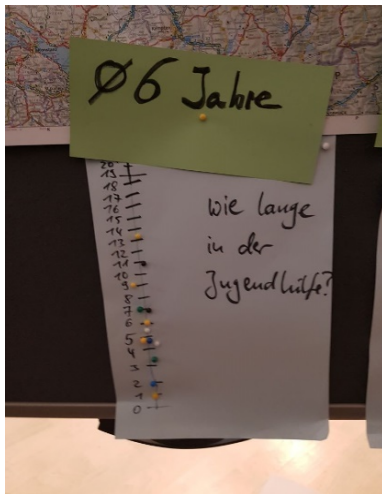 Ø 6 Jahre
wie lange
in der
Jugendhilfe?
20
19
18
17
16
15
14
13
12
11
10
9
8
7
6
5
4
3
2
1
0